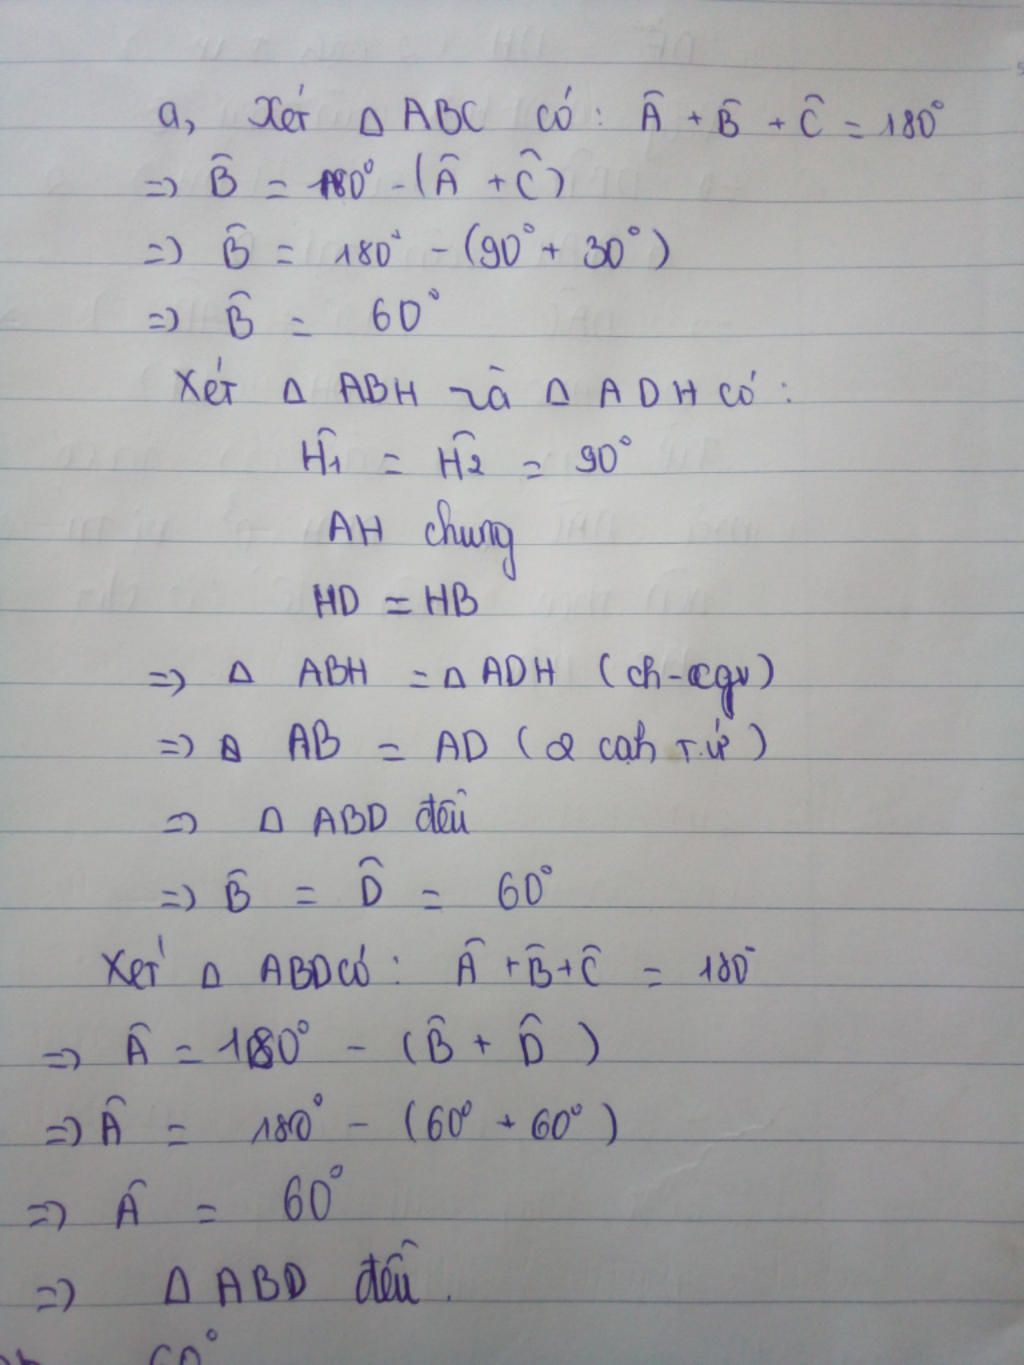 a, Xét Δ ABC có: Â + B̂ + Ĉ = 180°
=> B̂ = 180° - (Â + Ĉ)
=> B̂ = 180° - (90° + 30°)
=> B̂ = 60°
Xét Δ ABH và Δ ADH có:
Ĥ1 = Ĥ2 = 90°
AH chung
HD = HB
=> Δ ABH = Δ ADH (ch-cgv)
=> Δ AB = AD (2 cạh t.ứ)
=> Δ ABD đều
=> B̂ = D̂ = 60°
Xét Δ ABD có: Â + B̂ + Ĉ = 180°
=> Â = 180° - (B̂ + D̂)
=> Â = 180° - (60° + 60°)
=> Â = 60°
=> Δ ABD đều.